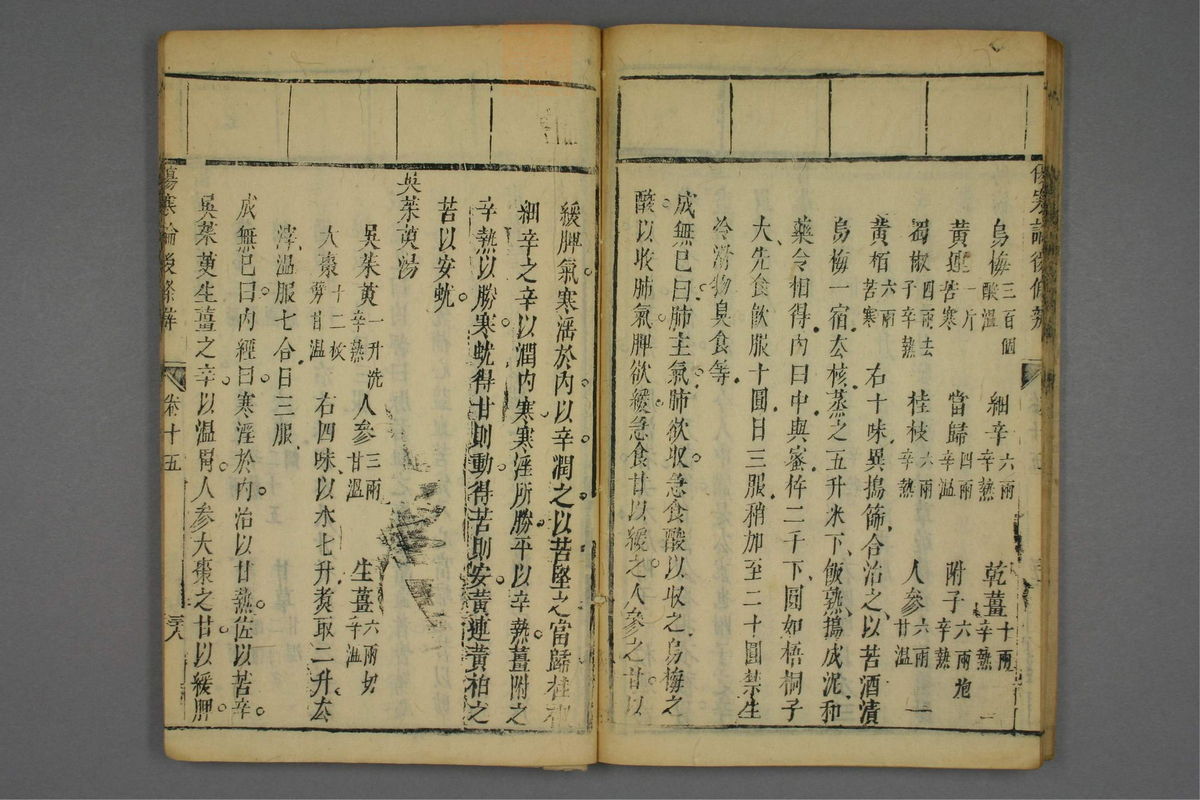 烏梅三百個酸溫 細辛六兩辛熱 乾薑十兩辛熱
黃連一斤苦寒 當歸四兩辛溫 附子六兩炮辛熱
蜀椒四兩去子辛熱 桂枝六兩辛熱 人參六兩甘溫
黃栢六兩苦寒 右十味異搗篩合治之以苦酒漬
烏梅一宿去核蒸之五升米下飯熟搗成泥和
藥令相得內臼中與蜜杵二千下圓如梧桐子
大先食飲服十圓日三服稍加至二十圓禁生
冷滑物臭食等
成無已曰肺主氣肺欲收急食酸以收之烏梅之
酸以收肺氣脾欲緩急食甘以緩之人參之甘以
緩脾氣寒淫於內以辛潤之以苦堅之當歸桂椒
細辛之辛以潤內寒寒淫所勝平以辛熱薑附之
辛熱以勝寒蚘得甘則動得苦則安黃連黃栢之
苦以安蚘
吳茱萸湯
吳茱萸一升洗辛熱 人參三兩甘溫 生薑六兩切辛溫
大棗十二枚劈甘溫 右四味以水七升煮取二升去
滓溫服七合日三服
成無已曰內經曰寒淫於內治以甘熱佐以苦辛
吳茱萸生薑之辛以溫胃人參大棗之甘以緩脾
傷寒論後條辨 卷十五